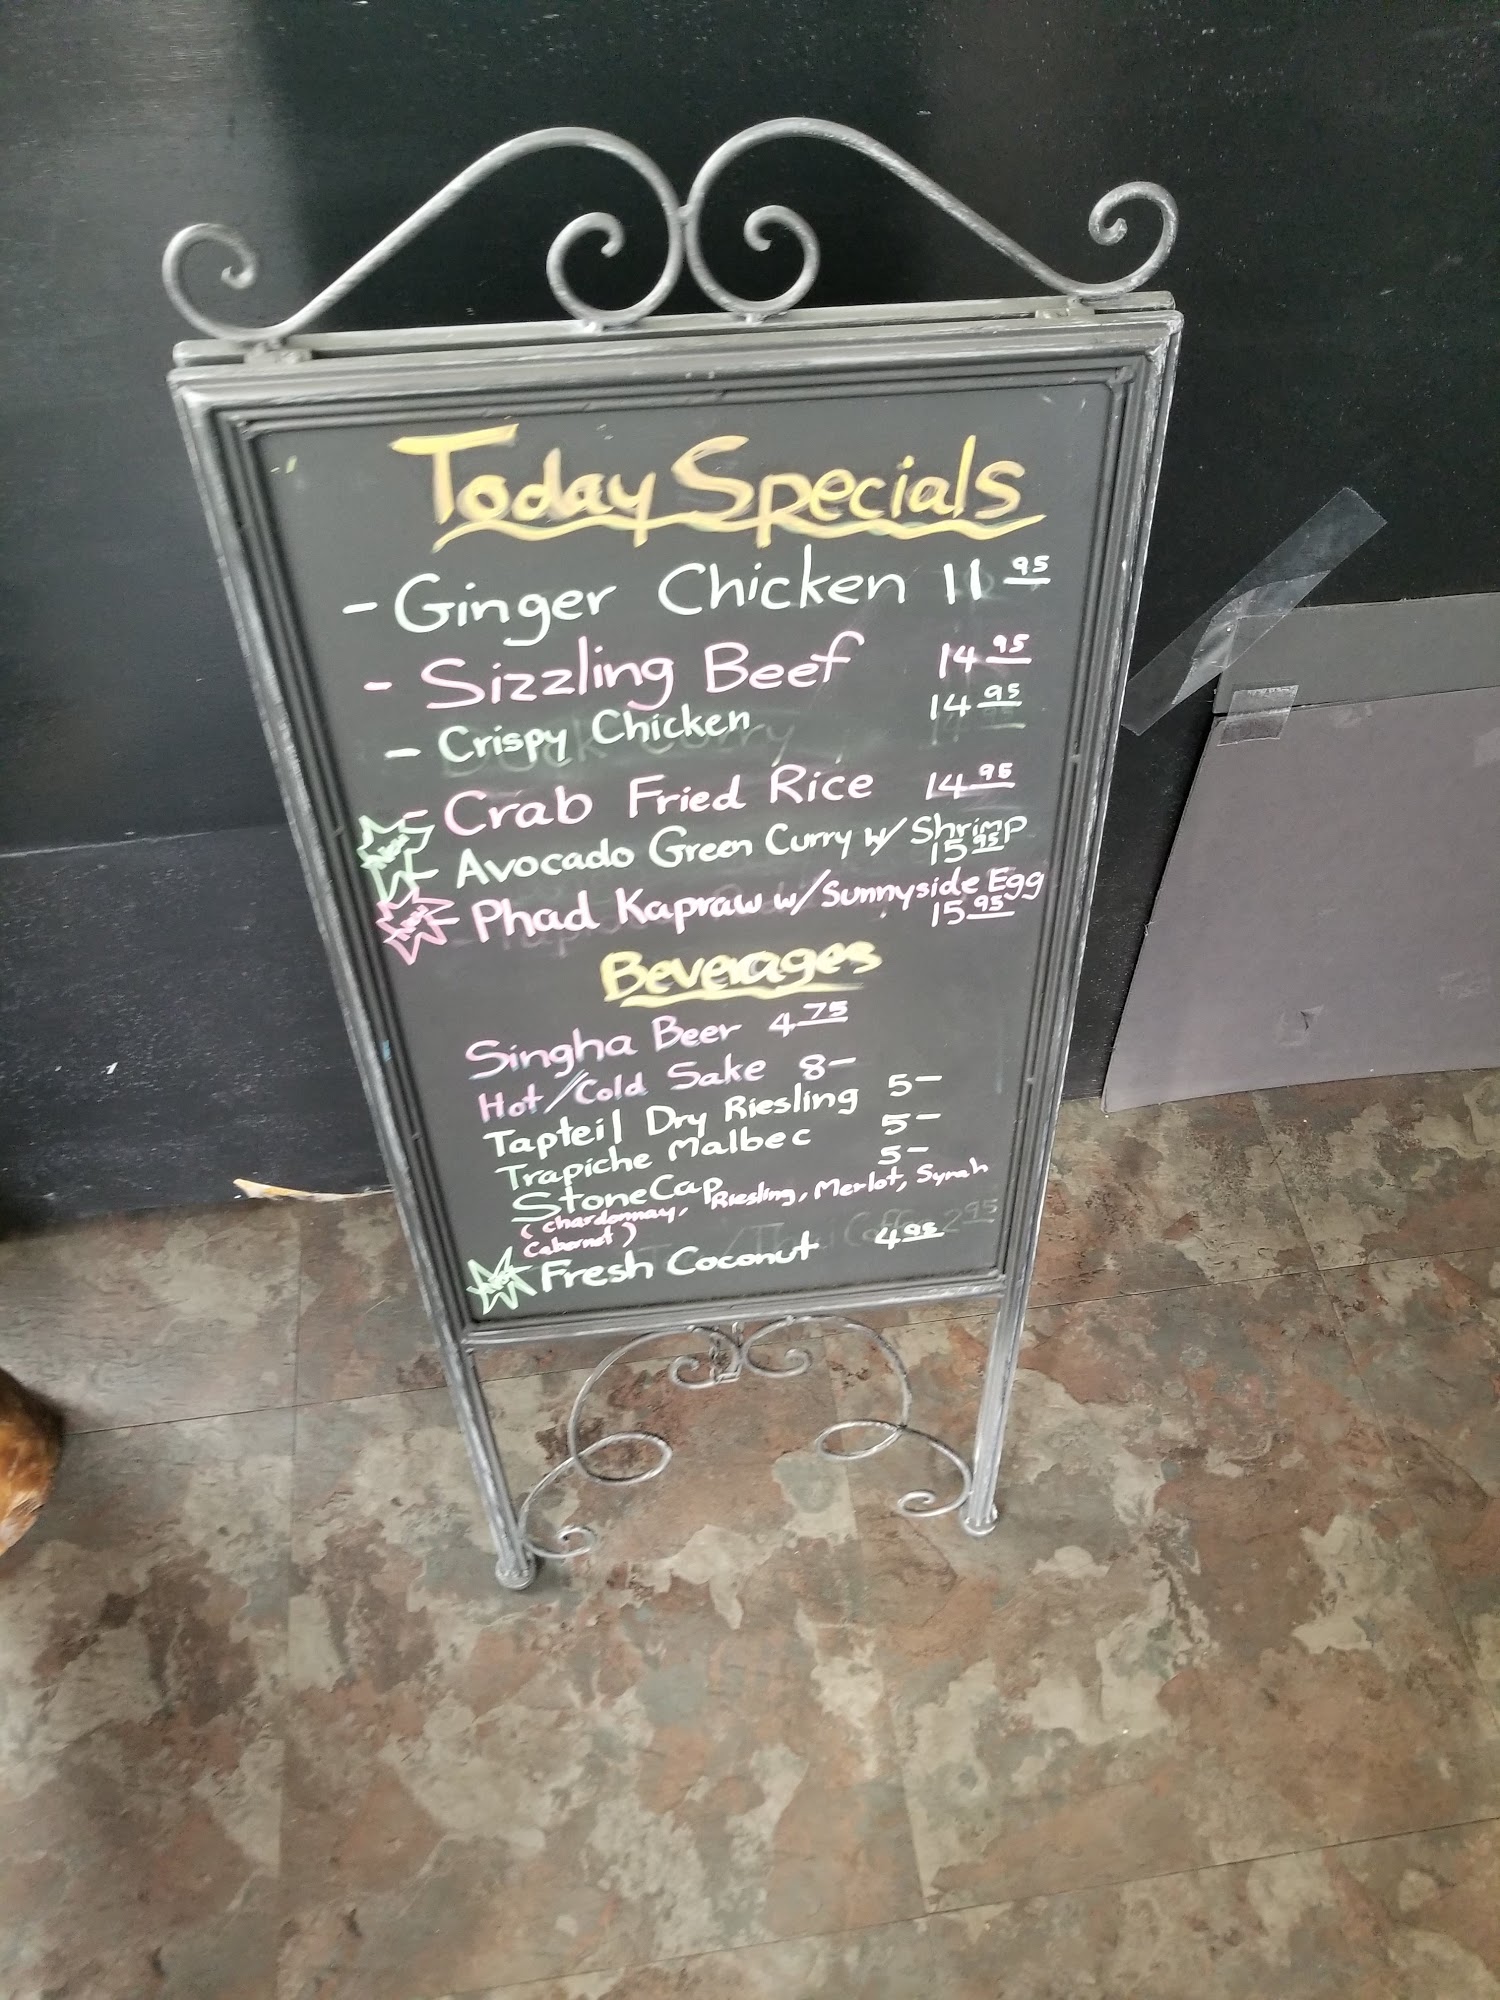 Today Specials
- Ginger Chicken 11 95
- Sizzling Beef 14 95
- Crispy Chicken 14 95
- Crab Fried Rice 14 95
New - Avocado Green Curry w/ Shrimp
15 95
New - Phad Kapraw w/ Sunnyside Egg
15 95
Beverages
Singha Beer 4 75
Hot/Cold Sake 8-
Tapteil Dry Riesling 5-
Trapiche Malbec 5-
StoneCap 5-
(Chardonnay, Riesling, Merlot, Syrah
Cabernet)
New Fresh Coconut 4 95